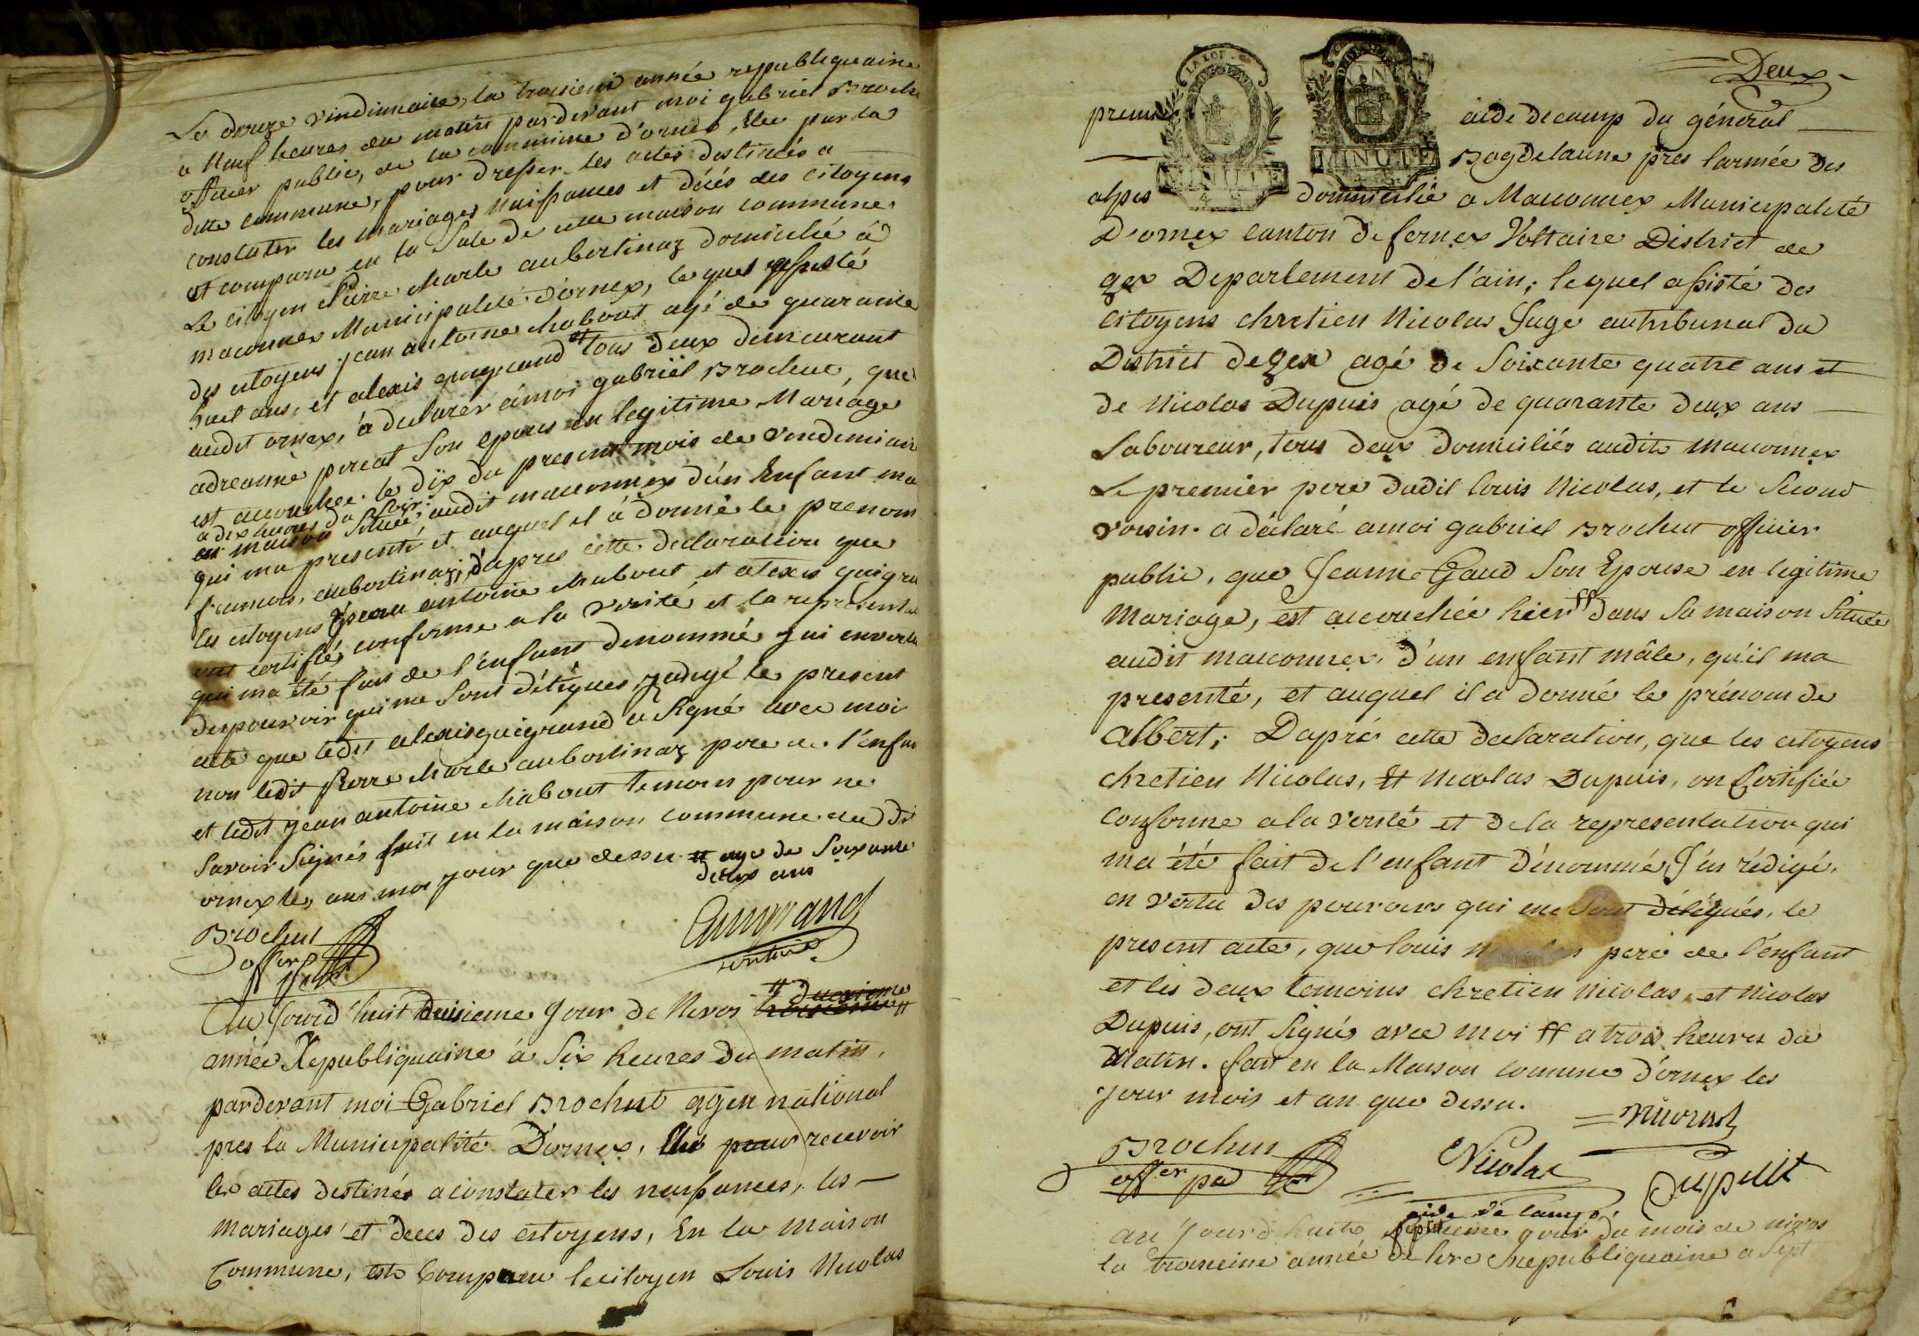 Le douze vindimiaire, la troisieme année republiquaine
a Neuf heures du matin pardevant moi gabriel Broch
officier public, de la commune d'ornex, Elu par la
ditte commune, pour dresser les actes destinés a
constater les mariages Naissances et décés des citoyens
et comparu en la Sale de cette maison commune
Le citoyen Pierre Marle aubortinaz domicilié à
maconnex Municipalité d'ornex, lequel assisté
des citoyens jean antoine chabout agé de quarante
huit ans, et alexis guigrand # tous deux demeurant
audit ornex, à declarer à moi gabriel Brochut, que
adreanne percat Son epouse en legitime Mariage
est accouchée le dix du present mois de vendimiaire
a dix heures du Soir
en maison Située audit maconnex d'un Enfant ma
qui ma presenté et auquel il à donné le prenom
francois, aubortinaz; d'apres cette declaration que
les citoyens jean antoine chabout et alexis guigra
ont certifiés conforme a la verité et la representa
qui ma été fais de l'enfant denommé jai en vertu
des pouvoir qui me Sont délégués redigé le present
acte que ledit alexis guigrand a Signé avec moi
non ledit pierre Marle aubortinaz pere de l'enfan
et ledit jean antoine chabout temoin pour ne
Savoir Signés fait en la maison commune du dit
ornex les, ans moi jour que dessu # age de Soixante
deux ans
Brochut
offier
Au Jourd'huit deusieme Jour de Nivos # deuxieme
troisieme #
année Republiquaine à Six heures du matin,
pardevant moi Gabriel Brochut agen national
pres la Municipalité D'ornex, Elu pour recevoir
les actes destinés a constater les naissances, les
mariages et deces des citoyens, En la maison
Commune, est Comparu le citoyen Louis Nicolas
Deux
premier aide de camp du général
Bagdelaune pres l'armée des
alpes domicilié a Maconnex Municipalité
D'ornex canton de fernex Voltaire District de
gex Departement de l'ain, lequel assisté des
Citoyens chretien Nicolas Juge au tribunal du
District de gex agé de Soixante quatre ans et
de Nicolas Dupuis agé de quarante deux ans
Laboureur, tous deux domiciliés audit maconnex
Le premier pere dudil louis Nicolas, et le Second
voisin. a déclaré a moi gabriel Brochut officier
public, que Jeanne Gaud Son Epouse en legitime
Mariage, est accouchée hier # dans Sa maison Située
audit maconnex, d'un enfant mâle, qu'il ma
presenté, et auquel il a donné le prénom de
albert; Daprés cette declaration, que les citoyens
chretien Nicolas, Et Nicolas Dupuis, on Certifiée
Conforme a la verité et de la representation qui
ma été fait de l'enfant dénommé, J'ai rédigé,
en vertu des pouvoirs qui me Sont délégués, le
present acte, que louis Nicolas pere de l'enfant
et les deux temoins chretien Nicolas, et Nicolas
Dupuis, ont Signés avec moi # a trois heures du
Matin. fait en la Maison comune d'ornex les
jour mois et an que dessu.
Brochut
offier
Nicolas
aide de camp
Dupuit
au Jourd'huit Septieme jour du mois de nivos
la troisieme année de lere Republiquaine a Sept
LA LOI
MINUTE
MINUTE